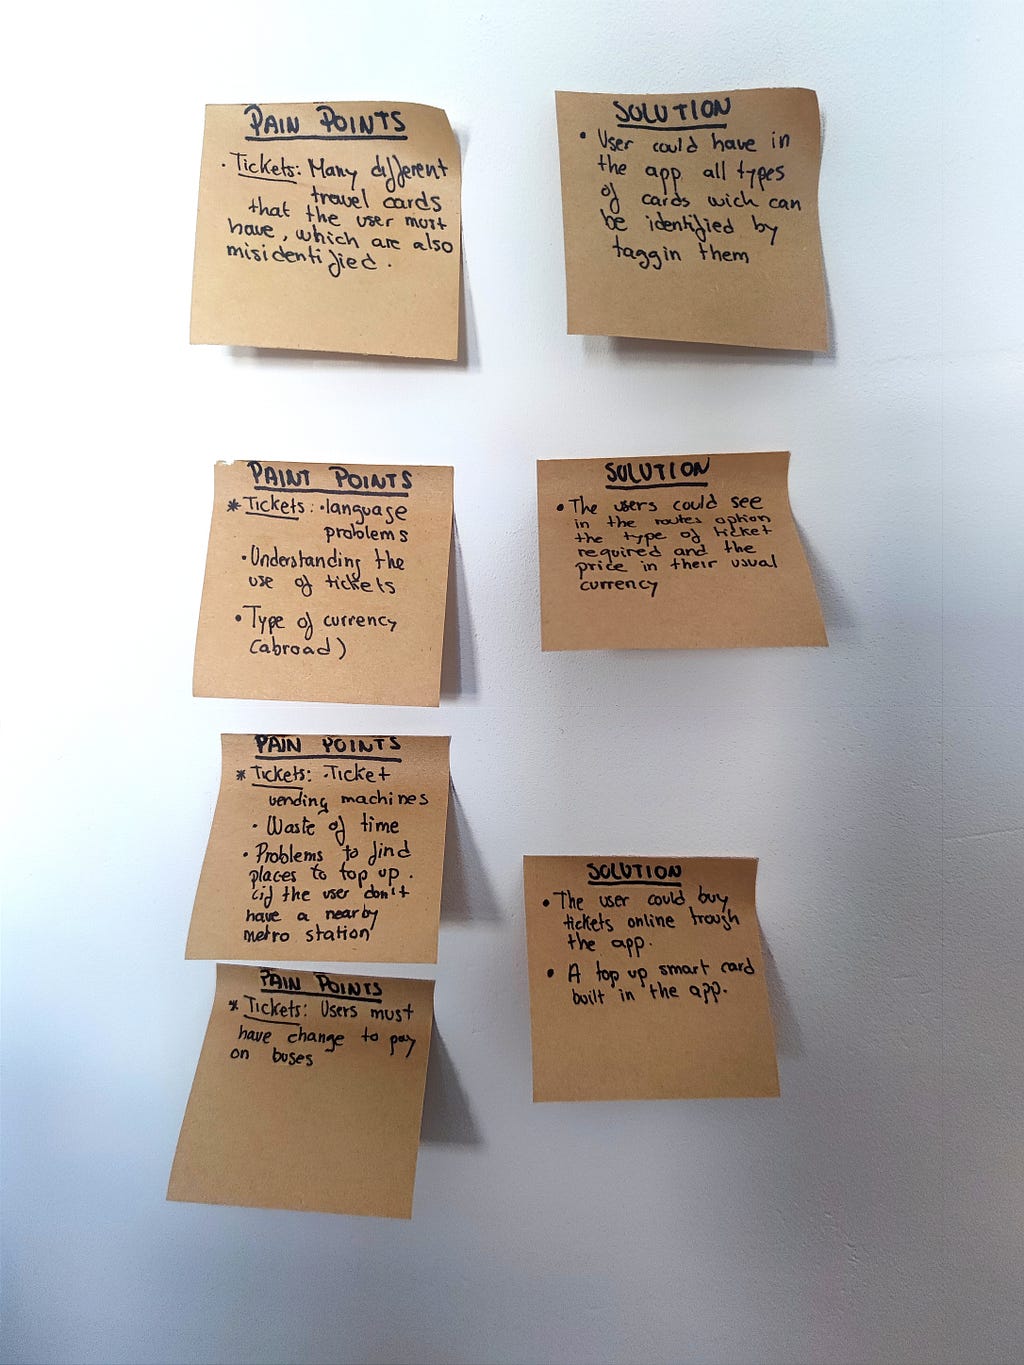 PAIN POINTS
· Tickets: Many different
travel cards
that the user must
have, which are also
misidentified.
SOLUTION
• User could have in
the app all types
of cards wich can
be identified by
taggin them
PAINT POINTS
* Tickets: · language
problems
· Understanding the
use of tickets
• Type of currency
(abroad)
SOLUTION
• The users could see
in the routes option
the type of ticket
required and the
price in their usual
currency
PAIN POINTS
* Tickets: · Ticket
vending machines
· Waste of time
· Problems to find
places to top up.
(if the user don't
have a nearby
metro station
PAIN POINTS
* Tickets: Users must
have change to pay
on buses
SOLUTION
• The user could buy
tickets online trough
the app.
• A top up smart card
built in the app.